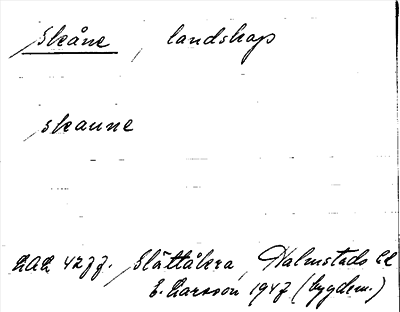 Skåne, landskap
skaune
LAL 4277. Slättåkra, Halmstads hd
E. Larsson 1947 (bygdem.)